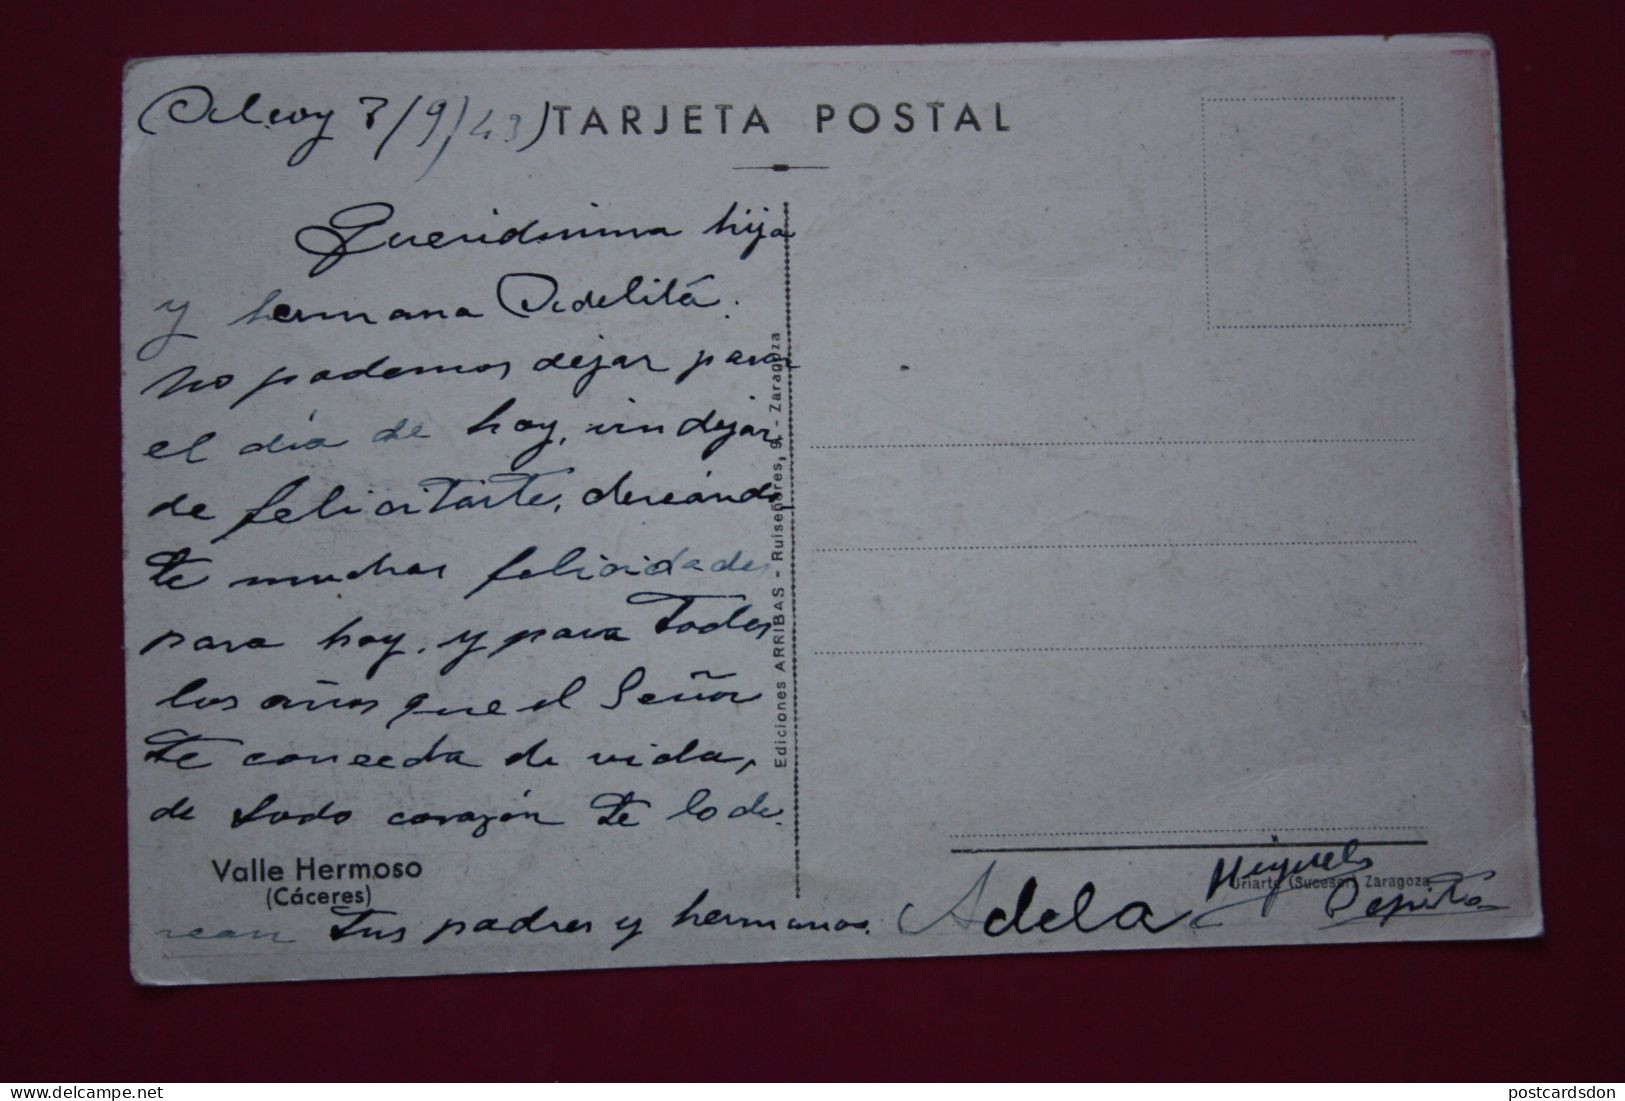 Alcoy 7/9/43
TARJETA POSTAL
Queridisima hija
y hermana Adelitá.
no podemos dejar pasar
el día de hoy, sin dejar
de felicitarte, deseándo
te muchas felicidades
para hoy, y para todos
los años que el Señor
te conceda de vida,
de todo corazón te lo de
sean tus padres y hermanos.
Adela
Miguel
Pepita
Valle Hermoso
(Cáceres)
Ediciones ARRIBAS - Ruiseñores, 9 - Zaragoza
Uriarte (Sucesor) Zaragoza
postcardsdon